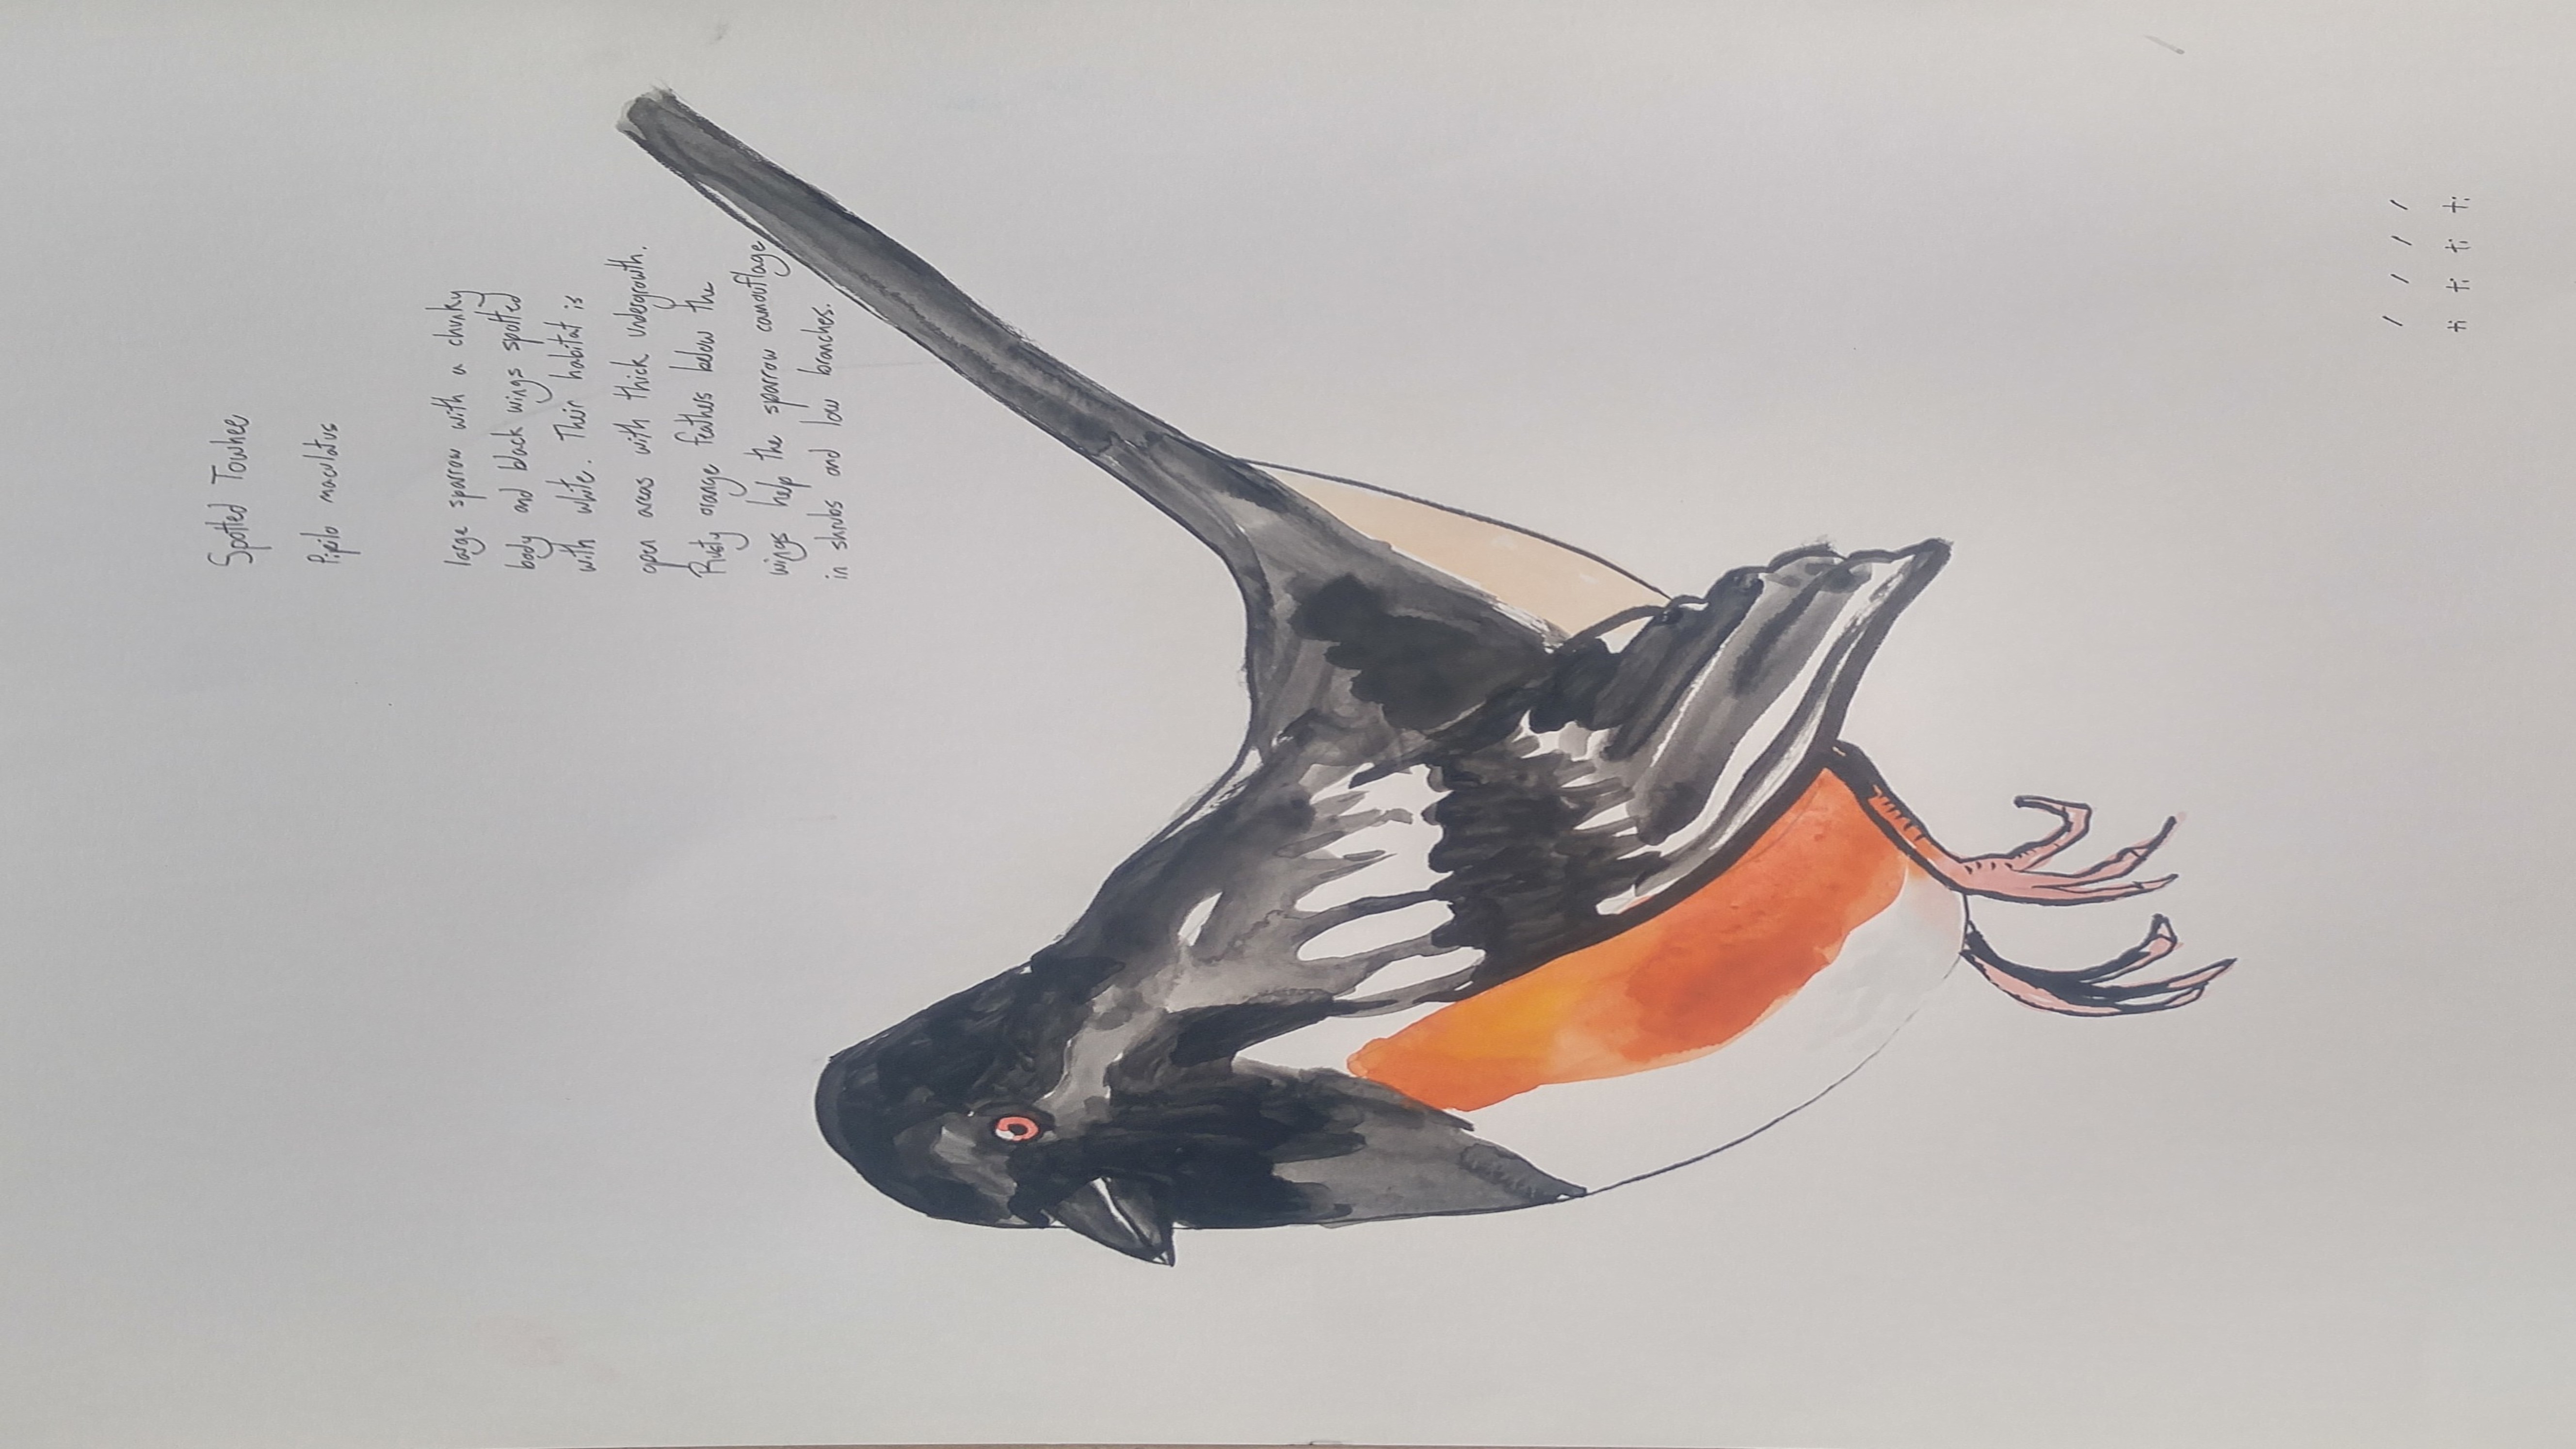 Spotted Towhee
Pipilo maculatus
large sparrow with a chunky
body and black wings spotted
with white. Their habitat is
open areas with thick undergrowth.
Rusty orange feathers below the
wings help the sparrow camouflage
in shrubs and low branches.